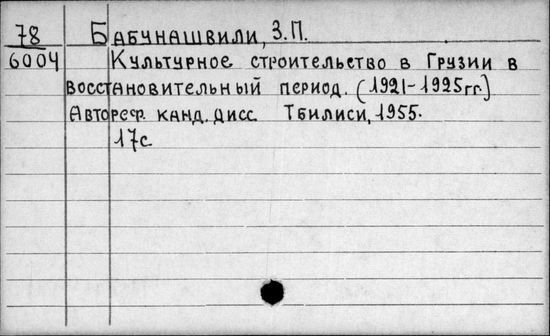 78 Бабунашвили, З.П.
6004 Культурное строительство в Грузии в
восстановительный период. (1921-1925гг.)
Автореф. канд. дисс. Тбилиси, 1955.
17с.